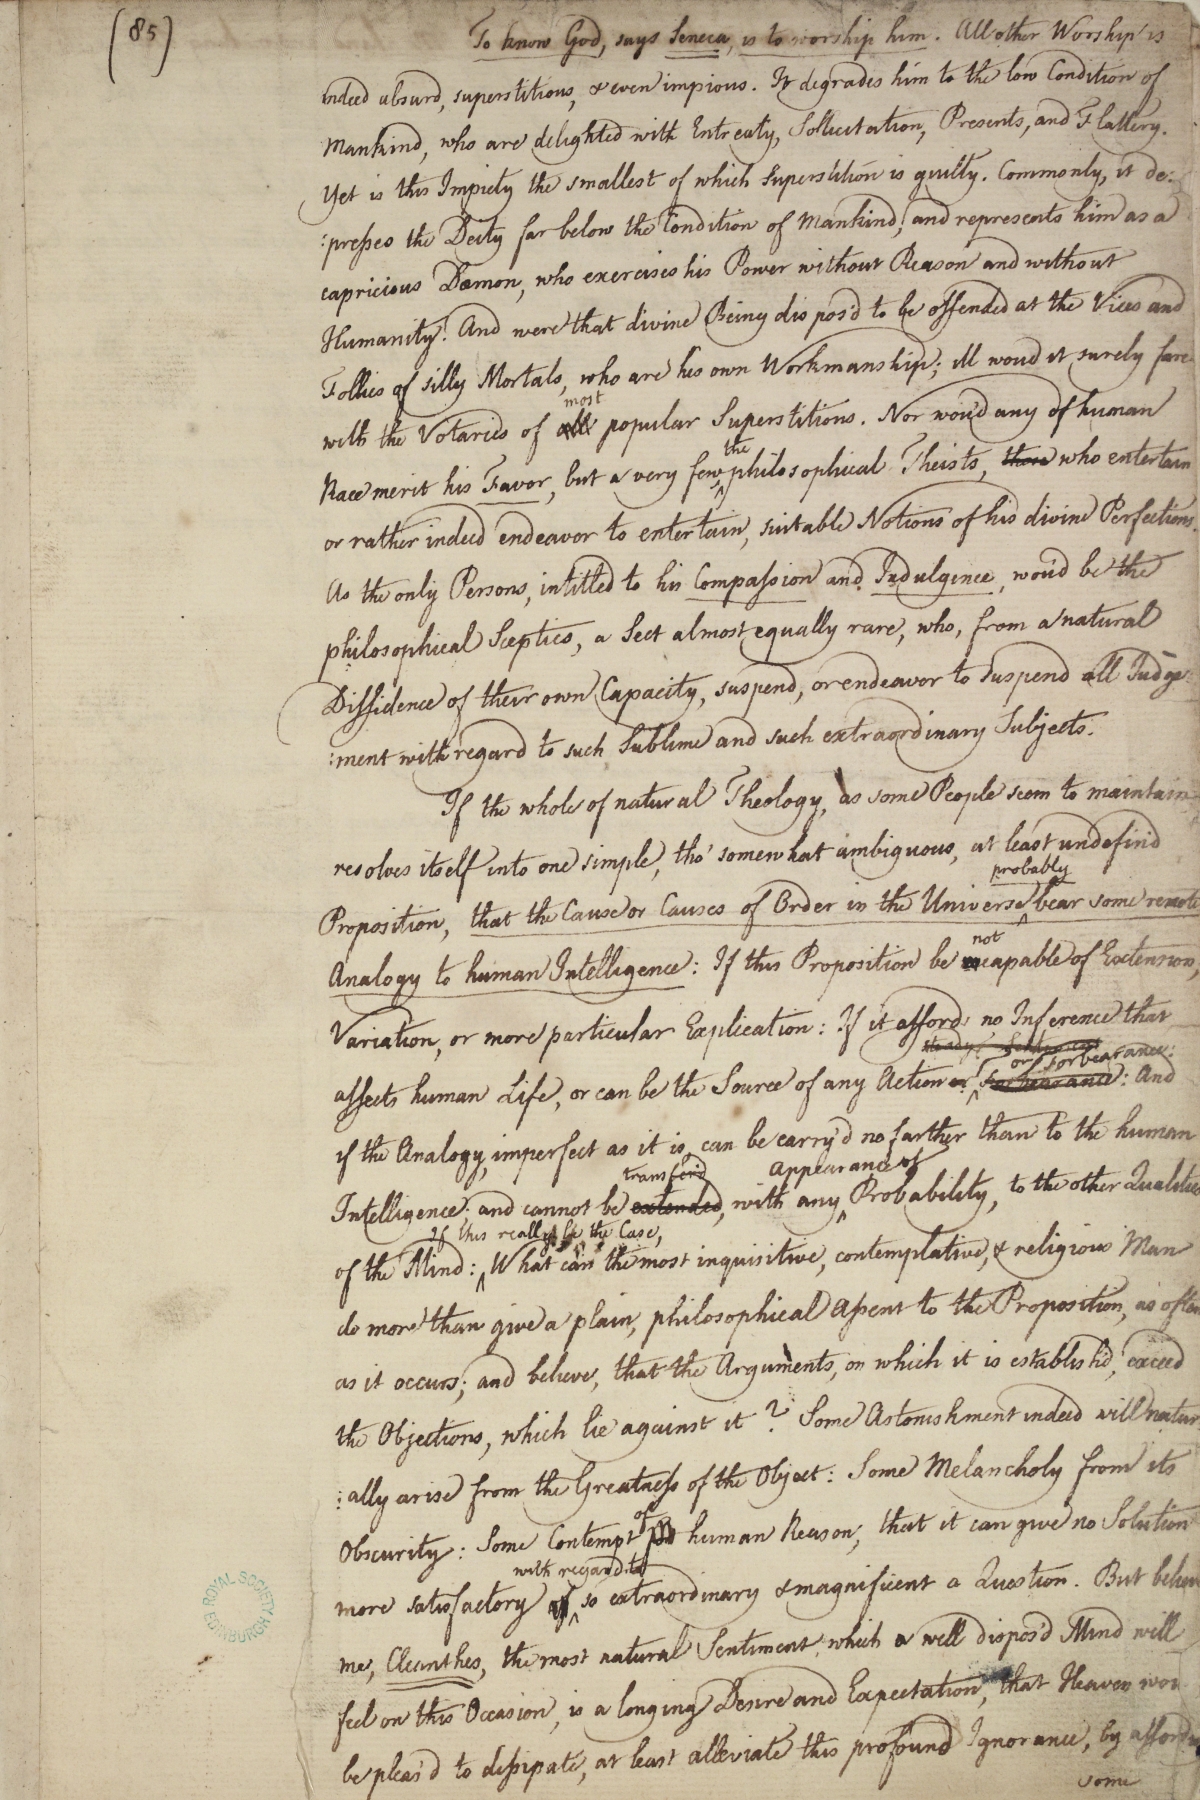 (85)
To know God, says Seneca, is to worship him. All other Worship is
indeed absurd, superstitious, & even impious. It degrades him to the low Condition of
Mankind, who are delighted with Entreaty, Sollicitation, Presents, and Flattery.
Yet is this Impiety the smallest of which Superstition is guilty. Commonly, it de:
:presses the Deity far below the Condition of Mankind, and represents him as a
capricious Dæmon, who exercises his Power without Reason and without
Humanity! And were that divine Being dispos'd to be offended at the Vices and
Follies of silly Mortals, who are his own Workmanship; ill woud it surely fare
most
with the Votaries of all popular Superstitions. Nor woud any of human
the
Race merit his Favor, but a very few philosophical Theists, those who entertain
or rather indeed endeavor to entertain, suitable Notions of his divine Perfections.
As the only Persons, intitled to his Compassion and Indulgence, woud be the
philosophical Sceptics, a Sect almost equally rare, who, from a natural
Diffidence of their own Capacity, suspend, or endeavor to suspend all Judge:
:ment with regard to such Sublime and such extraordinary Subjects.
If the whole of natural Theology, as some People seem to maintain,
resolves itself into one simple, tho' somewhat ambiguous, at least undefin'd
probably
Proposition, that the Cause or Causes of Order in the Universe bear some remote
not
Analogy to human Intelligence: If this Proposition be capable of Extension,
Variation, or more particular Explication: If it afford no Inference that
or forbearance:
affects human Life, or can be the Source of any Action or forbearance: And
if the Analogy, imperfect as it is, can be carry'd no farther than to the human
transferd appearance of
Intelligence; and cannot be extended, with any Probability, to the other Qualities
If this really be the Case,
of the Mind: What can the most inquisitive, contemplative, & religious Man
do more than give a plain, philosophical Assent to the Proposition, as often
as it occurs; and believe, that the Arguments, on which it is establish'd, exceed
the Objections, which lie against it? Some Astonishment indeed will natur
:ally arise from the Greatness of the Object: Some Melancholy from its
of
Obscurity: Some Contempt human Reason, that it can give no Solution
with regard to
more satisfactory of so extraordinary & magnificent a Question. But believe
me, Cleanthes, the most natural Sentiment, which a well dispos'd Mind will
feel on this Occasion, is a longing Desire and Expectation, that Heaven wou
be pleas'd to dissipate, at least alleviate this profound Ignorance, by affording
some
ROYAL SOCIETY
EDINBURGH